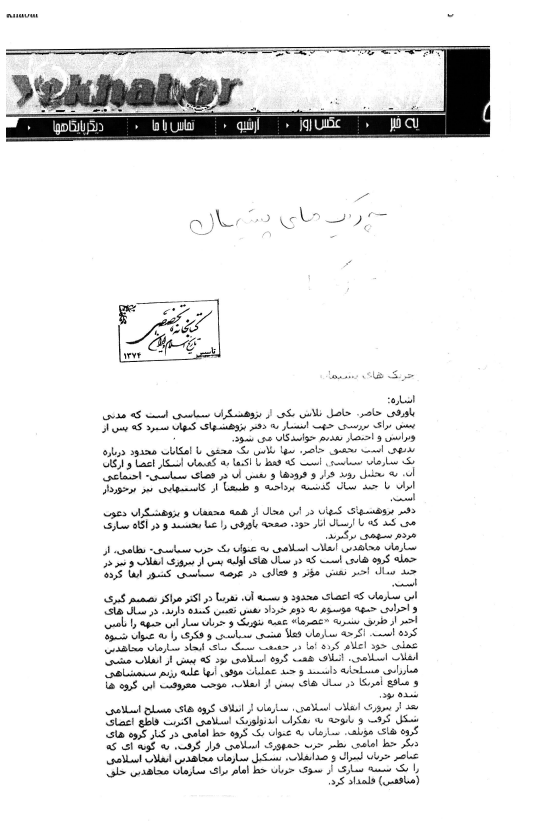 Yekhabar
یه خبر ◂ عکس روز ◂ آرشیو ◂ تماس با ما ◂ دیگر پایگاهها ◂
چریک های پشیمان
کتابخانه تخصصی
تاریخ اسلام و ایران
تاسیس ۱۳۷۴
چریک های پشیمان
اشاره:
پاورقی حاضر، حاصل تلاش یکی از پژوهشگران سیاسی است که مدتی
پیش برای بررسی جهت انتشار به دفتر پژوهشهای کیهان سپرد که پس از
ویرایش و اختصار تقدیم خوانندگان می شود.
بدیهی است تحقیق حاضر، تنها تلاش یک محقق با امکانات محدود درباره
یک سازمان سیاسی است که فقط با اکتفا به گفتمان آشکار اعضا و ارگان
آن، به تحلیل روند فراز و فرودها و نقش آن در فضای سیاسی- اجتماعی
ایران تا چند سال گذشته پرداخته و طبیعتاً از کاستیهایی نیز برخوردار
است.
دفتر پژوهشهای کیهان در این مجال از همه محققان و پژوهشگران دعوت
می کند که با ارسال آثار خود، صفحه پاورقی را غنا بخشند و در آگاه سازی
مردم سهمی برگیرند.
سازمان مجاهدین انقلاب اسلامی به عنوان یک حزب سیاسی- نظامی، از
جمله گروه هایی است که در سال های اولیه پس از پیروزی انقلاب و نیز در
چند سال اخیر نقش مؤثر و فعالی در عرصه سیاسی کشور ایفا کرده
است.
این سازمان که اعضای محدود و بسته آن، تقریباً در اکثر مراکز تصمیم گیری
و اجرایی جبهه موسوم به دوم خرداد نقش تعیین کننده دارند، در سال های
اخیر از طریق نشریه «عصرما» عقبه تئوریک و جریان ساز این جبهه را تأمین
کرده است. اگرچه سازمان فعلاً مشی سیاسی و فکری را به عنوان شیوه
عملی خود اعلام کرده اما در حقیقت سنگ بنای ایجاد سازمان مجاهدین
انقلاب اسلامی، ائتلاف هفت گروه اسلامی بود که پیش از انقلاب مشی
مبارزاتی مسلحانه داشتند و چند عملیات موفق آنها علیه رژیم ستمشاهی
و منافع آمریکا در سال های پیش از انقلاب، موجب معروفیت این گروه ها
شده بود.
بعد از پیروزی انقلاب اسلامی، سازمان از ائتلاف گروه های مسلح اسلامی
شکل گرفت و باتوجه به تفکرات ایدئولوژیک اسلامی اکثریت قاطع اعضای
گروه های مؤتلف، سازمان به عنوان یک گروه خط امامی در کنار گروه های
دیگر خط امامی نظیر حزب جمهوری اسلامی قرار گرفت، به گونه ای که
عناصر جریان لیبرال و ضدانقلاب، تشکیل سازمان مجاهدین انقلاب اسلامی
را یک شبیه سازی از سوی جریان خط امام برای سازمان مجاهدین خلق
(منافقین) قلمداد کرد.